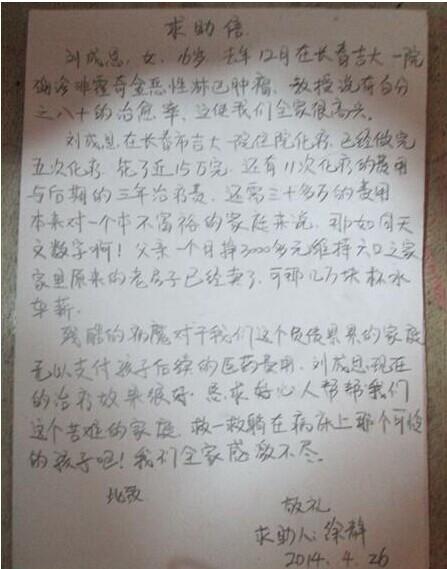 求助信
刘成思，女，16岁 去年12月在长春吉大一院
确诊非霍奇金恶性淋巴肿瘤，教授说有百分
之八十的治愈率，这使我们全家很高兴。
刘成思在长春市吉大一院住院化疗，已经做完
五次化疗 花了近15万元，还有11次化疗的费用
与后期的三年治疗费，还需三十多万的费用
本来对一个本不富裕的家庭来说，那如同天
文数字啊！父亲一个月挣3000多元维持六口之家
家里原来的老房子已经卖了，可那几万块杯水
车薪，
残酷的病魔对于我们这个负债累累的家庭
无以支付孩子后续的医药费用，刘成思现在
的治疗效果很好，恳求好心人帮帮我们
这个苦难的家庭，救一救躺在病床上那个可怜
的孩子吧！我们全家感激不尽。
此致
敬礼
求助人：徐静
2014.4.26